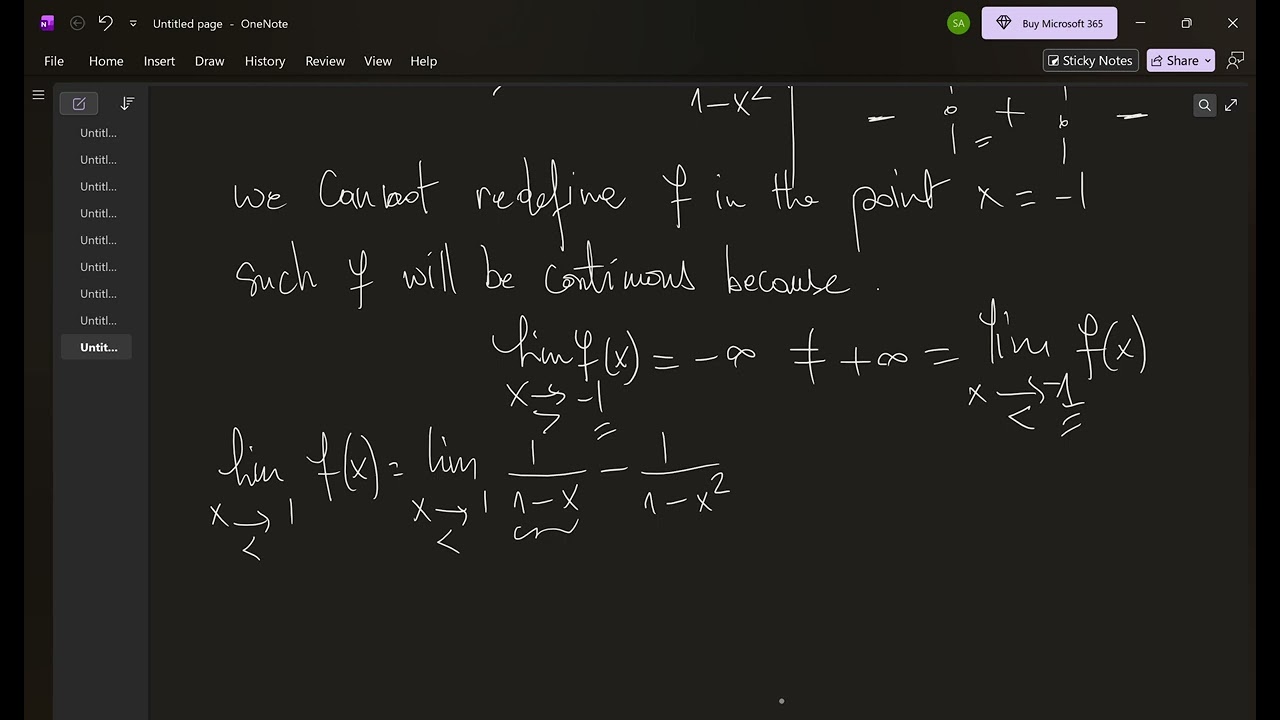 Untitled page - OneNote
SA
Buy Microsoft 365
File Home Insert Draw History Review View Help
Sticky Notes
Share
Untitl...
Untitl...
Untitl...
Untitl...
Untitl...
Untitl...
Untitl...
Untitl...
Untit...
1-x² - 0 + 0 -
we cannot redefine f in the point x = -1
such f will be continous because.
lim f(x) = -∞ ≠ +∞ = lim f(x)
x → -1 x → -1
> <
lim f(x) = lim 1/(1-x) - 1/(1-x²)
x → 1 x → 1
< <